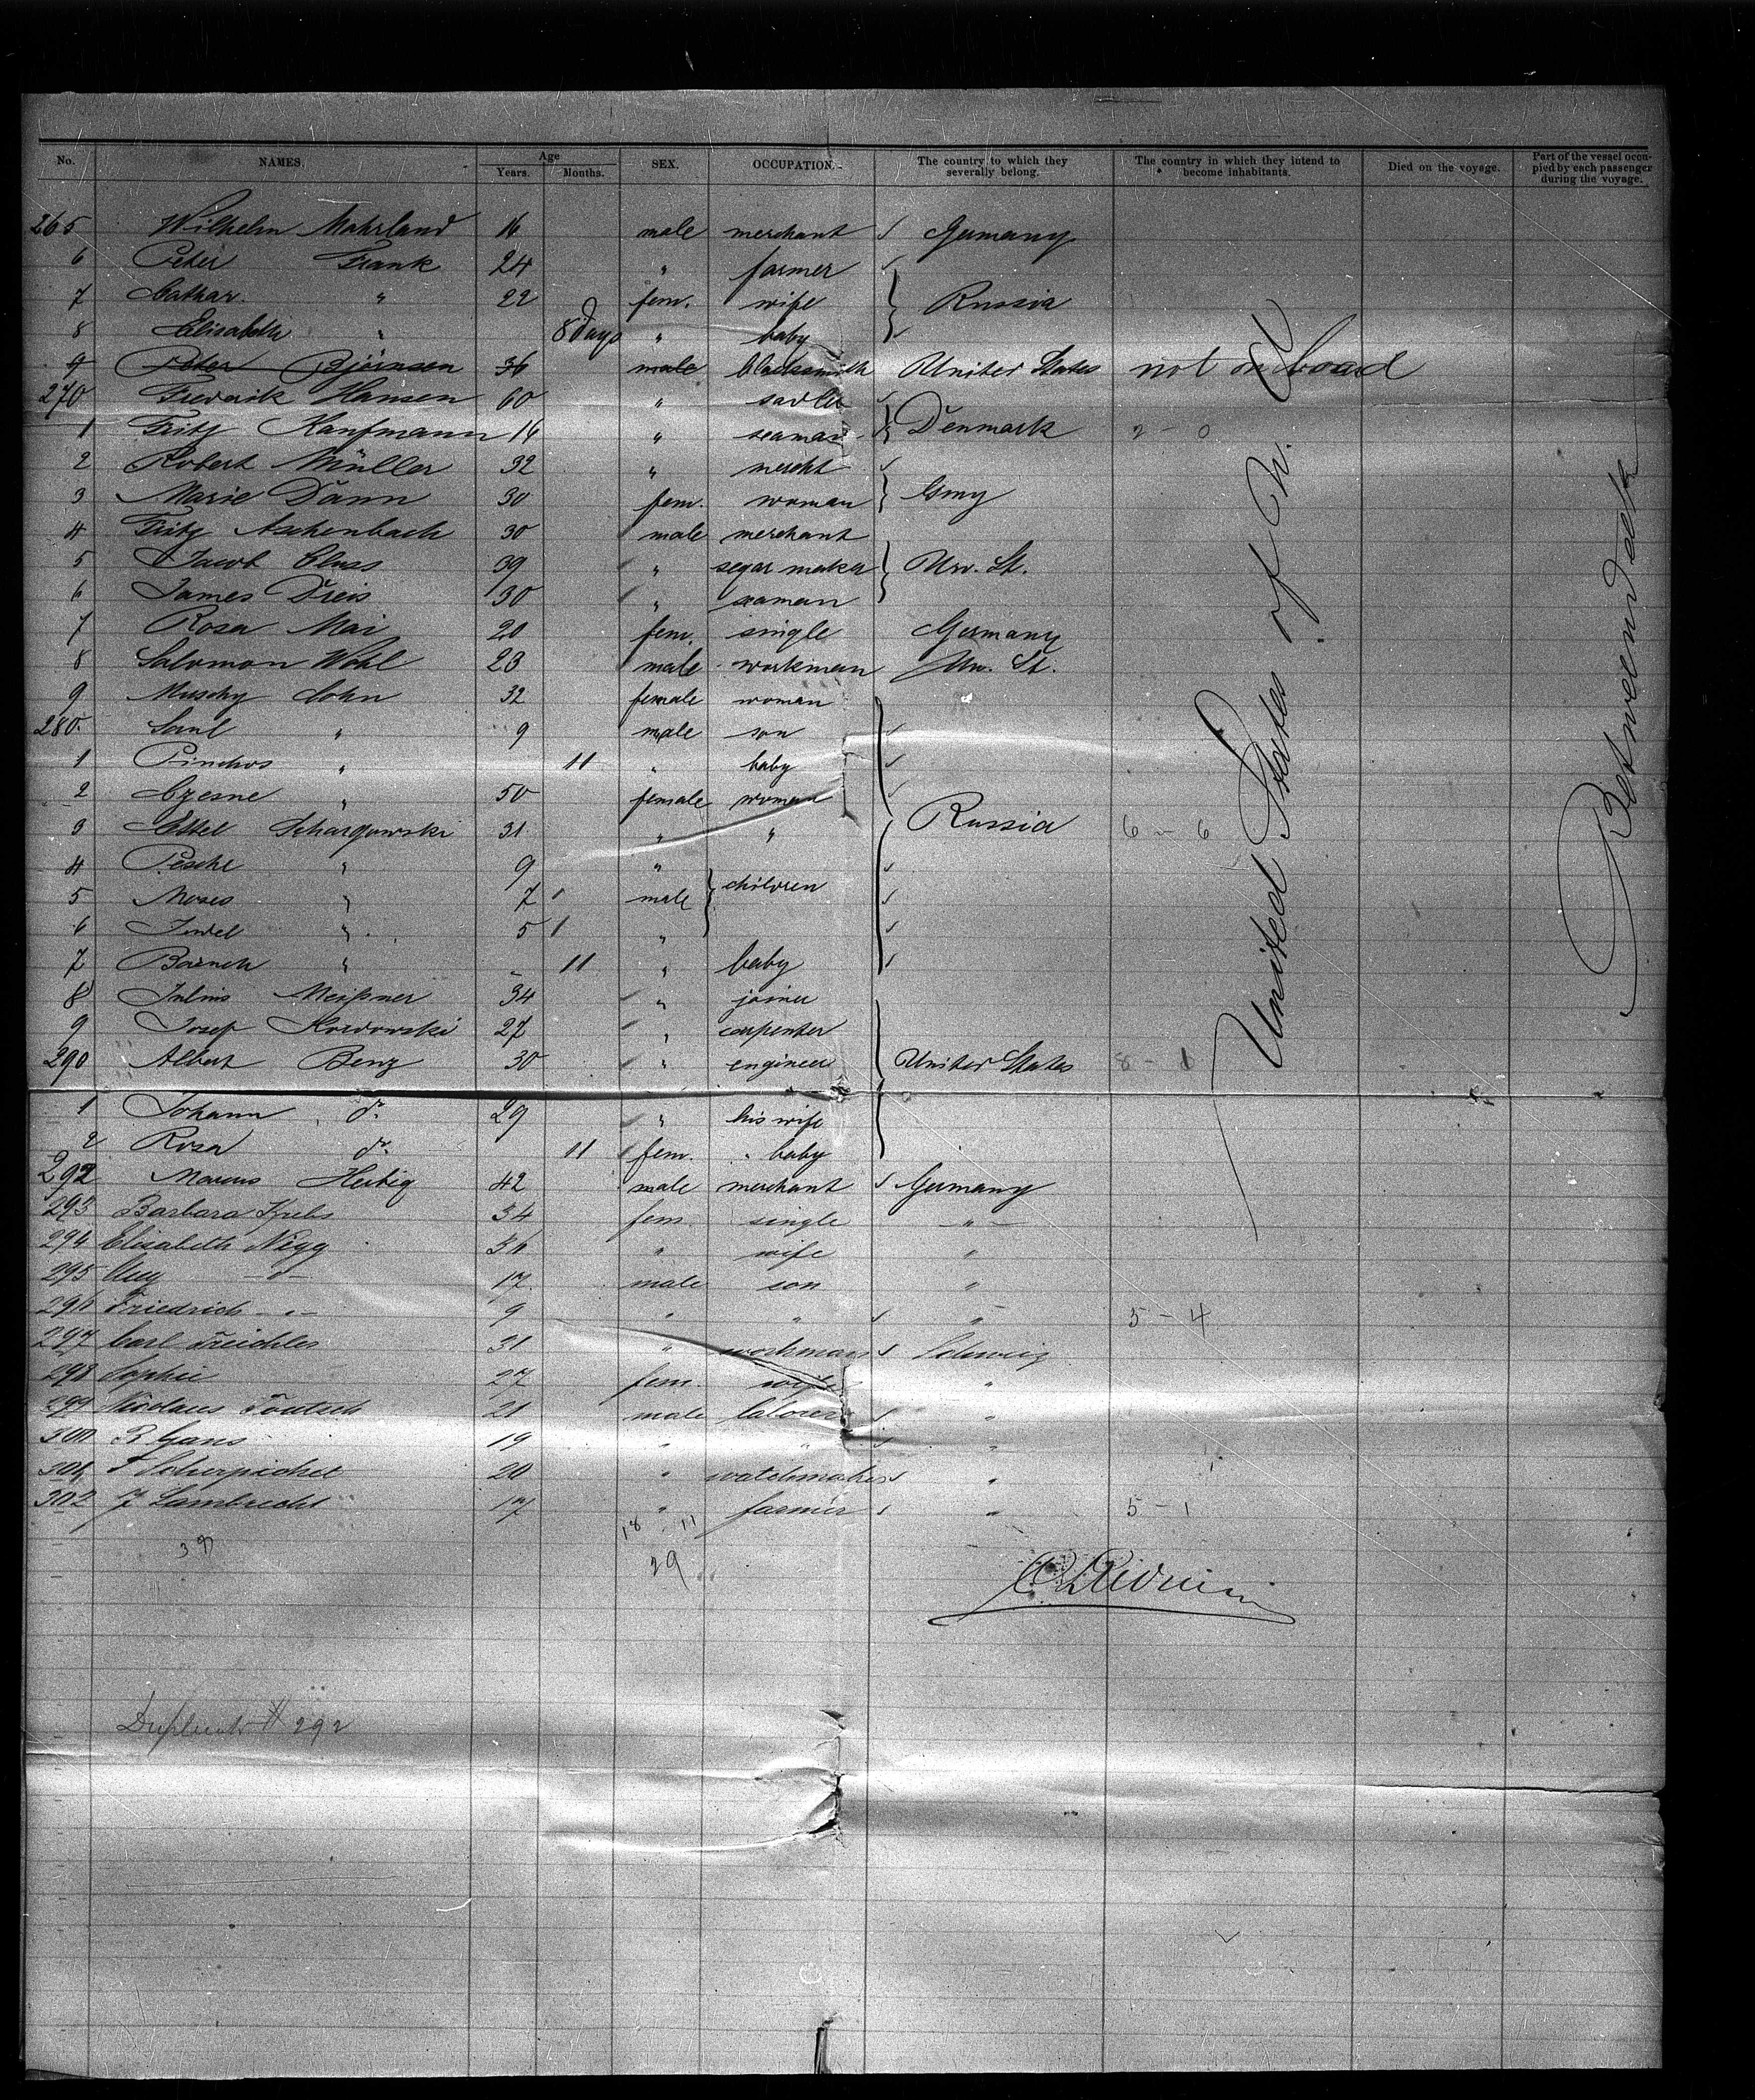 No. NAMES. Age Years. Months. SEX. OCCUPATION. The country to which they severally belong. The country in which they intend to become inhabitants. Died on the voyage. Part of the vessel occupied by each passenger during the voyage.
265 Wilhelm Mahrland 16 male merchant Germany
6 Peter Frank 24 " farmer
7 Cathar. " 22 fem. wife Russia
8 Elisabeth " 8 days " baby
9 Peter Björnsen 36 male blacksmith United States not on board
270 Frederik Hansen 60 " sadler
1 Fritz Kaufmann 16 " seaman Denmark 2 - 0
2 Robert Müller 32 " mercht
3 Marie Damm 30 fem. woman Gmy
4 Fritz Aschenbach 30 male merchant
5 Jacob Cluss 39 " segar maker Un. St.
6 James Dreis 30 " seaman
7 Rosa Mai 20 fem. single Germany
8 Salomon Wohl 23 male workman Un. St.
9 Muschy Cohn 32 female woman
280. Saul " 9 male son
1 Pinchos " 11 " baby
2 Czerne " 50 female woman
3 Ettel Schargowski 31 " " Russia 6 - 6
4 Pesche " 9 "
5 Moses " 7 male children
6 Judel " 5 "
7 Baruch " 11 " baby
8 Julius Meißner 34 " joiner
9 Josef Kordowski 27 " carpenter
290 Albert Benz 30 " engineer United States 8 - 1
1 Johann do. 29 " his wife
2 Rosa do. 11 fem. baby
292 Marcus Herbig 42 male merchant Germany
293 Barbara Krebs 34 fem. single - " -
294 Elisabeth Nigg 36 " wife "
295 Aug - " - 17 male son "
296 Friedrich - " - 9 " " " 5 - 4
297 Carl Treichler 31 " workman Schweiz
298 Sophie 27 fem. wife "
299 Nicolaus Toutsch 21 male laborer "
300 R Gans 19 " " "
301 20 " watchmaker "
302 J Lambrecht 17 " farmer " 5 - 1
18 - 11
39 29
Duplicate # 292
United States of N. A.
Betweendeck